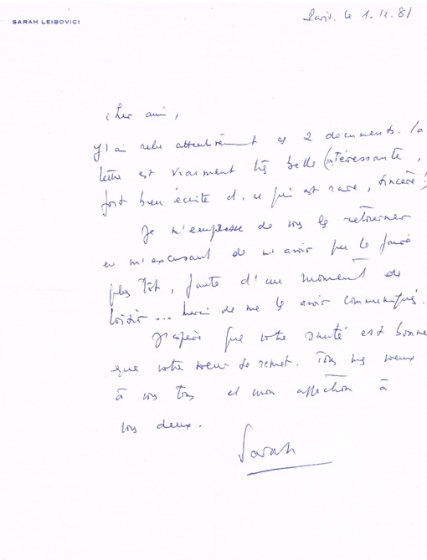 SARAH LEIBOVICI
Paris. le 1.12.81
Cher ami,
J'ai relu attentivement ces 2 documents. La
lettre est vraiment très belle (intéressante,
fort bien écrite et, ce qui est rare, sincère !
Je m'empresse de vous les retourner
en m'excusant de n'avoir pu le faire
plus tôt, faute d'un moment de
loisir ... Merci de me les avoir communiqués.
J'espère que votre santé est bonne
que votre soeur se remet. Tous mes voeux
à vous tous et mon affection à
vous deux.
Sarah